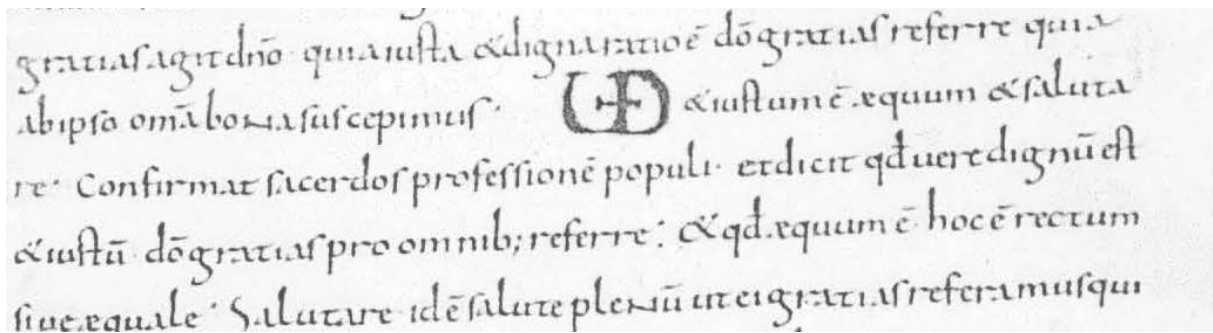 gratias agit dn̄o· quia iusta & digna ratio ē dō gratias referre quia
ab ipso om̄a bona suscepimus· UD & iustum ē æquum & saluta
re· Confirmat sacerdos professionē populi· et dicit qđ uere dignū est
& iustū dō gratias pro omnib; referre· & qđ æquum ē hoc ē rectum
siue æquale· Salutare id ē salute plenū ut ei gratias referamus qui